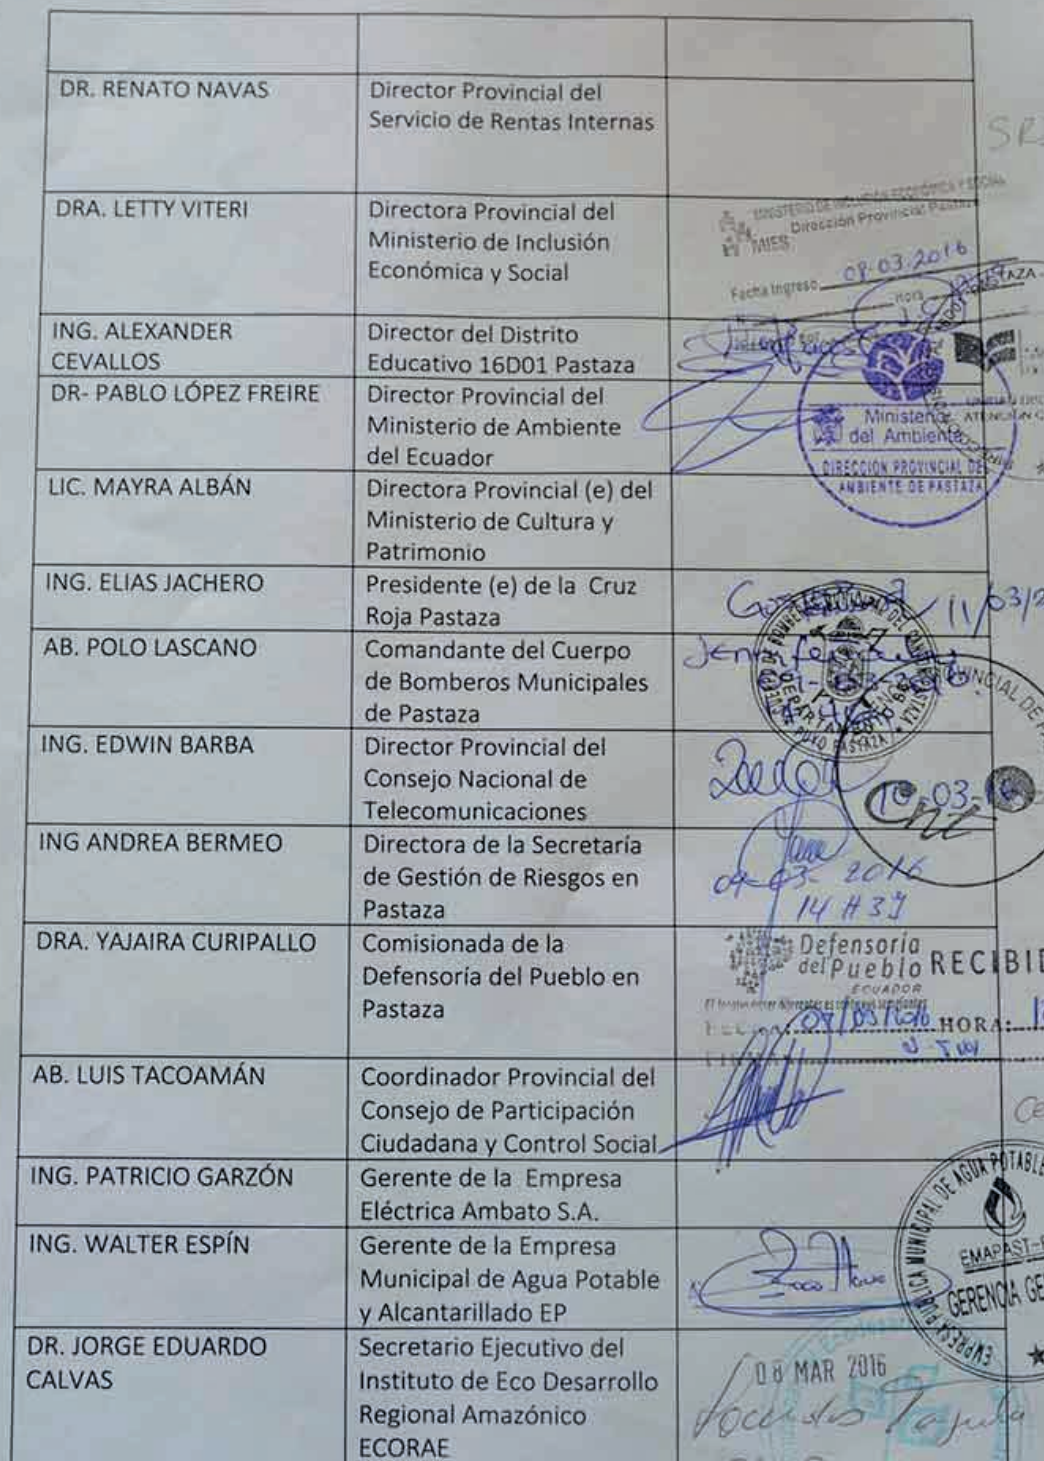 DR. RENATO NAVAS
Director Provincial del
Servicio de Rentas Internas
DRA. LETTY VITERI
Directora Provincial del
Ministerio de Inclusión
Económica y Social
MINISTERIO DE INCLUSIÓN ECONÓMICA Y SOCIAL
Dirección Provincial Pastaza
MIES
Fecha Ingreso 08-03-2016
Hora
ING. ALEXANDER
CEVALLOS
Director del Distrito
Educativo 16D01 Pastaza
DR- PABLO LÓPEZ FREIRE
Director Provincial del
Ministerio de Ambiente
del Ecuador
Ministerio
del Ambiente
DIRECCIÓN PROVINCIAL DE
AMBIENTE DE PASTAZA
LIC. MAYRA ALBÁN
Directora Provincial (e) del
Ministerio de Cultura y
Patrimonio
ING. ELIAS JACHERO
Presidente (e) de la Cruz
Roja Pastaza
11/03/2
AB. POLO LASCANO
Comandante del Cuerpo
de Bomberos Municipales
de Pastaza
PUYO PASTAZA
ING. EDWIN BARBA
Director Provincial del
Consejo Nacional de
Telecomunicaciones
ING ANDREA BERMEO
Directora de la Secretaría
de Gestión de Riesgos en
Pastaza
03- 2016
14 H 37
DRA. YAJAIRA CURIPALLO
Comisionada de la
Defensoría del Pueblo en
Pastaza
Defensoría
del Pueblo RECIBID
ECUADOR
HORA:
AB. LUIS TACOAMÁN
Coordinador Provincial del
Consejo de Participación
Ciudadana y Control Social
ING. PATRICIO GARZÓN
Gerente de la Empresa
Eléctrica Ambato S.A.
ING. WALTER ESPÍN
Gerente de la Empresa
Municipal de Agua Potable
y Alcantarillado EP
EMPRESA PUBLICA MUNICIPAL DE AGUA POTABLE
EMAPAST-E
GERENCIA GE
DR. JORGE EDUARDO
CALVAS
Secretario Ejecutivo del
Instituto de Eco Desarrollo
Regional Amazónico
ECORAE
08 MAR 2016